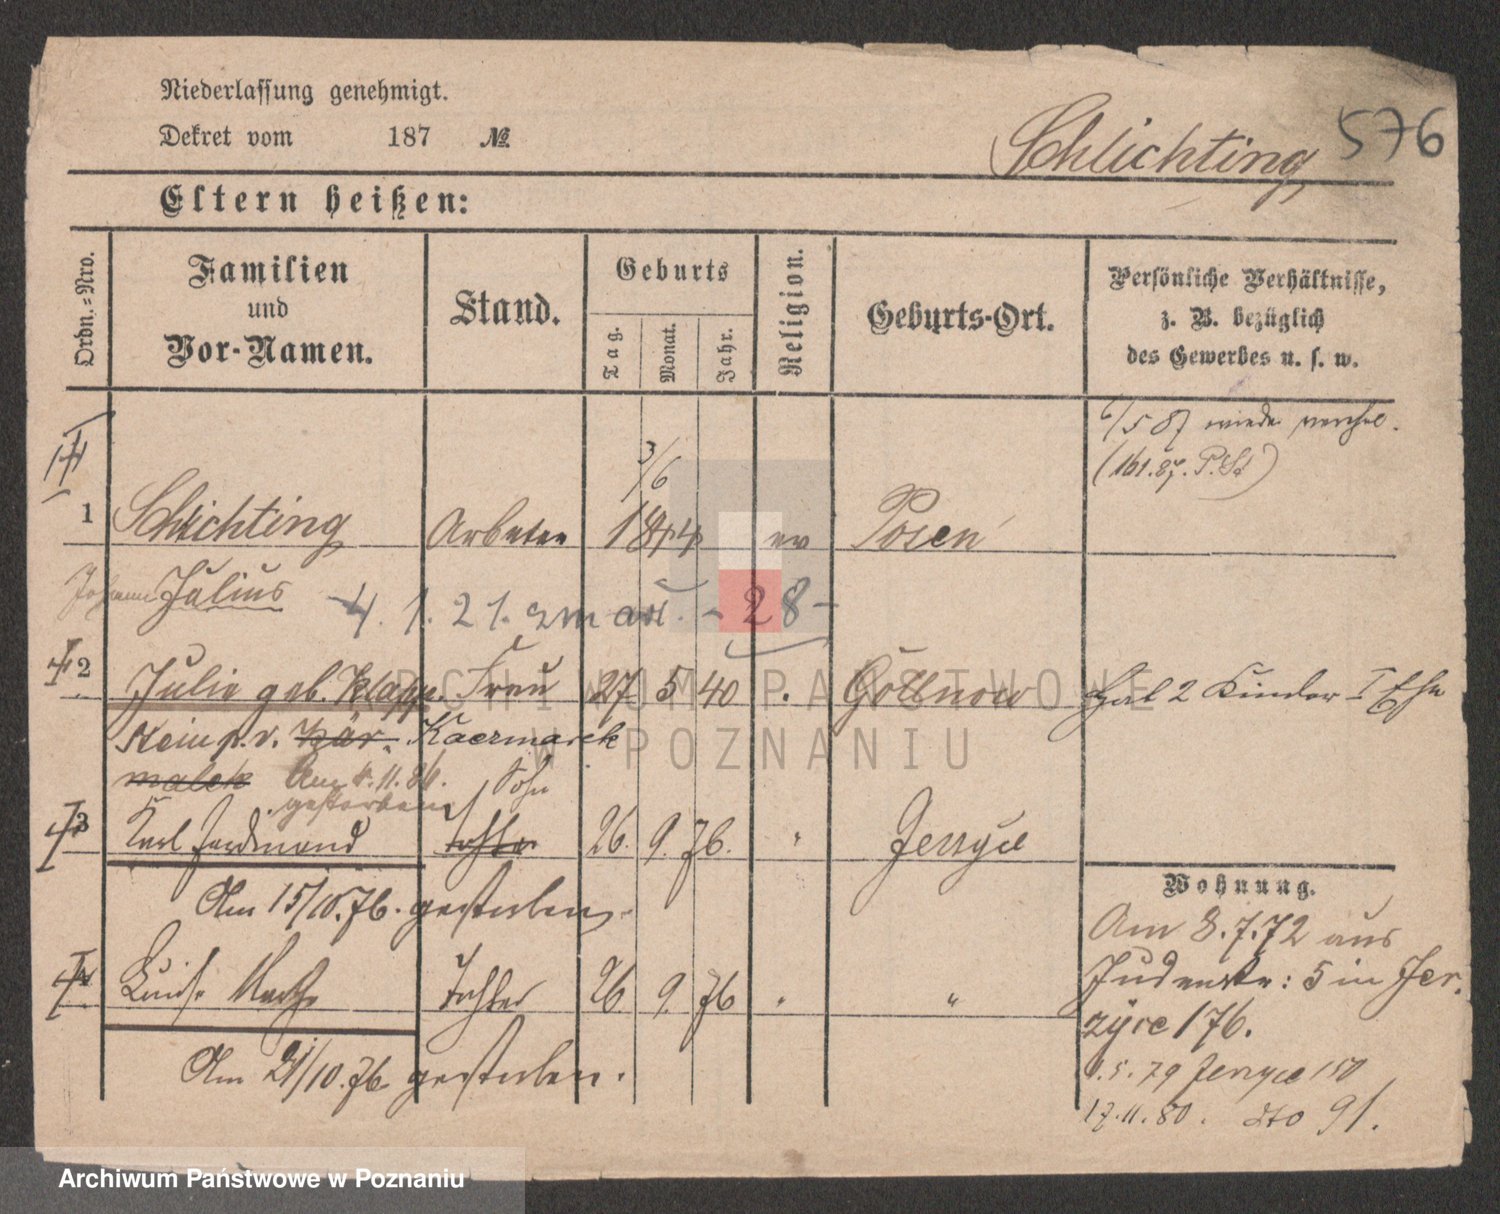 Niederlassung genehmigt.
Dekret vom 187 №
Schlichting 576
Eltern heißen:
Ordn.-Nro.
Familien
und
Vor-Namen.
Stand.
Geburts
Tag.
Monat.
Jahr.
Religion.
Geburts-Ort.
Persönliche Verhältnisse,
z. B. bezüglich
des Gewerbes u. s. w.
6/5 87 wieder
(161.87. P.St)
3/6
1 Schlichting Arbeiter 1844 ev Posen
Johann Julius
4. 1. 21. - 28 -
2 Julie geb. Klapp. Frau 27 5 40 Göllnow Hat 2 Kinder I Ehe
Kaczmarek
malek Am 4.11.86. Sohn
gestorben
3 Karl Ferdinand Tochter 26. 9. 76. " Jerzyce
Am 15/10.76. gestorben.
4 Luise Martha Tochter 26 9. 76 " "
Am 21/10.76 gestorben.
Wohnung.
Am 8.7.72 aus
Judenstr: 5 in Jer-
zyce 176.
.5.79 Jerzyce 150
17.11.80. dto 91.
ARCHIWUM PAŃSTWOWE
W POZNANIU
Archiwum Państwowe w Poznaniu